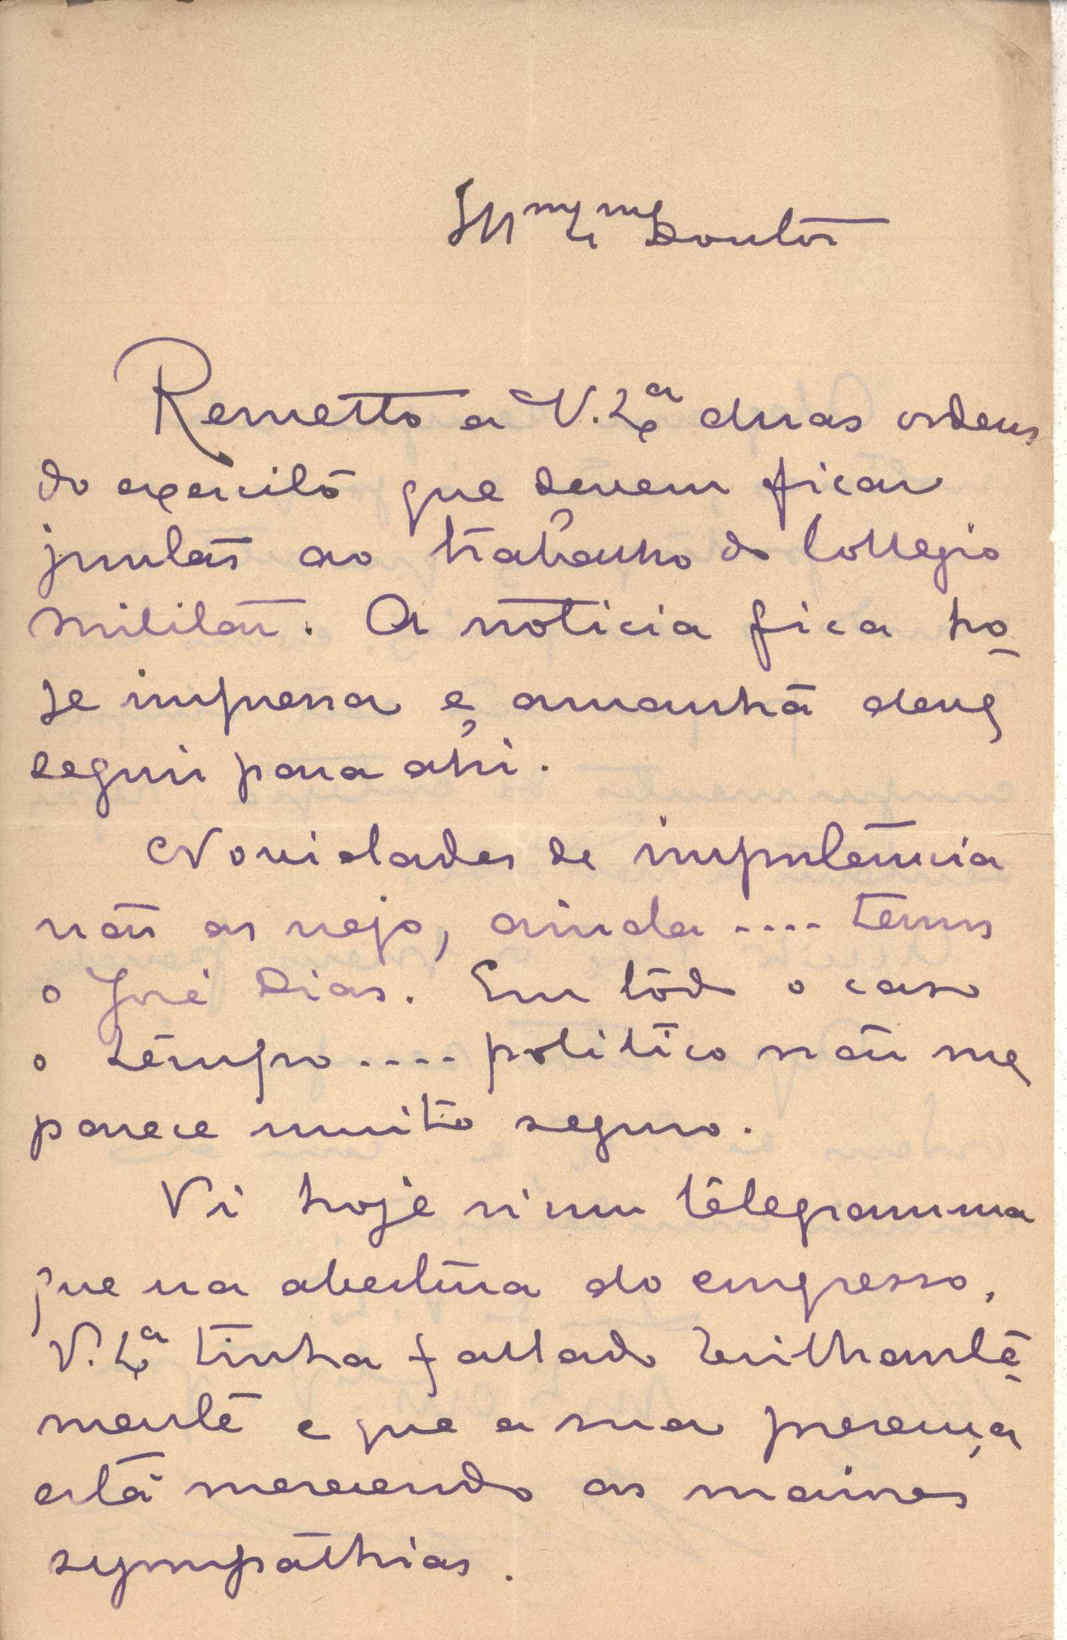 Illmo Exmo Doutor
Remetto a V. Exa duas ordens
do exercito que devem ficar
juntas ao trabalho do Collegio
militar. A noticia fica ho-
je impressa e amanhã deve
seguir para ahi.
Novidades de importancia
não as vejo, ainda .... temos
o José Dias. Em todo o caso
o tempo .... politico não me
parece muito seguro.
Vi hoje n'um telegramma
que na abertura do congresso,
V. Exa tinha fallado brilhante-
mente e que a sua presença
está merecendo as maiores
sympathias.